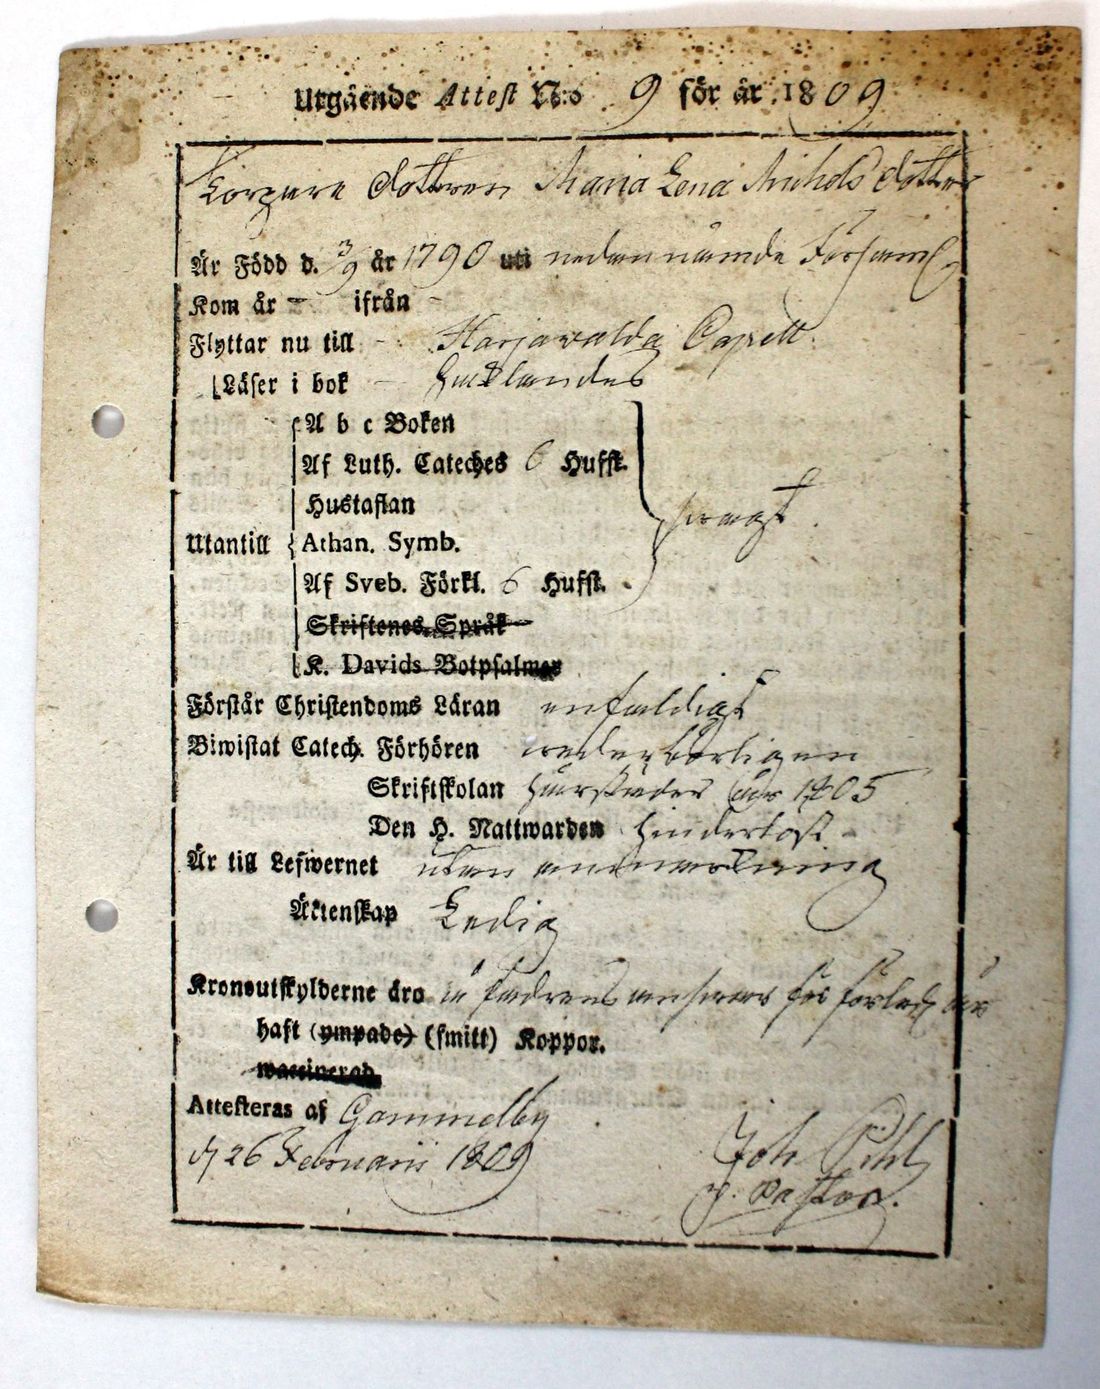 Utgående Attest N:o 9 för år 1809
Torpare dottren Maria Lena Michels dotter
Är Född d. 3/9 år 1790 uti nedannämde Församl.
Kom år - ifrån -
Flyttar nu till - Harjavalda Capell.
Läser i bok -
A b c Boken
Af Luth. Cateches 6 Hufst.
Hustaflan
Utantill Athan. Symb.
svagt.
Af Sveb. Förkl. 6 Hufst.
Skriftenes Språk
K. Davids Botpsalmer
Förstår Christendoms Läran enfaldigt
Biwistat Catech. Förhören wederbörligen
Skriftskolan 1805
Den H. Nattwarden hinderlöst
Är till Lefwernet utan anmärkning
Ächtenskap Ledig
Kronoutskylderne äro å fadrens ansvar för förled. år
haft (ympade) (smitt) Koppor.
waccinerad
Attesteras af Gammelby
d. 26 Februarii 1809
Joh. Pihl
Pastor.